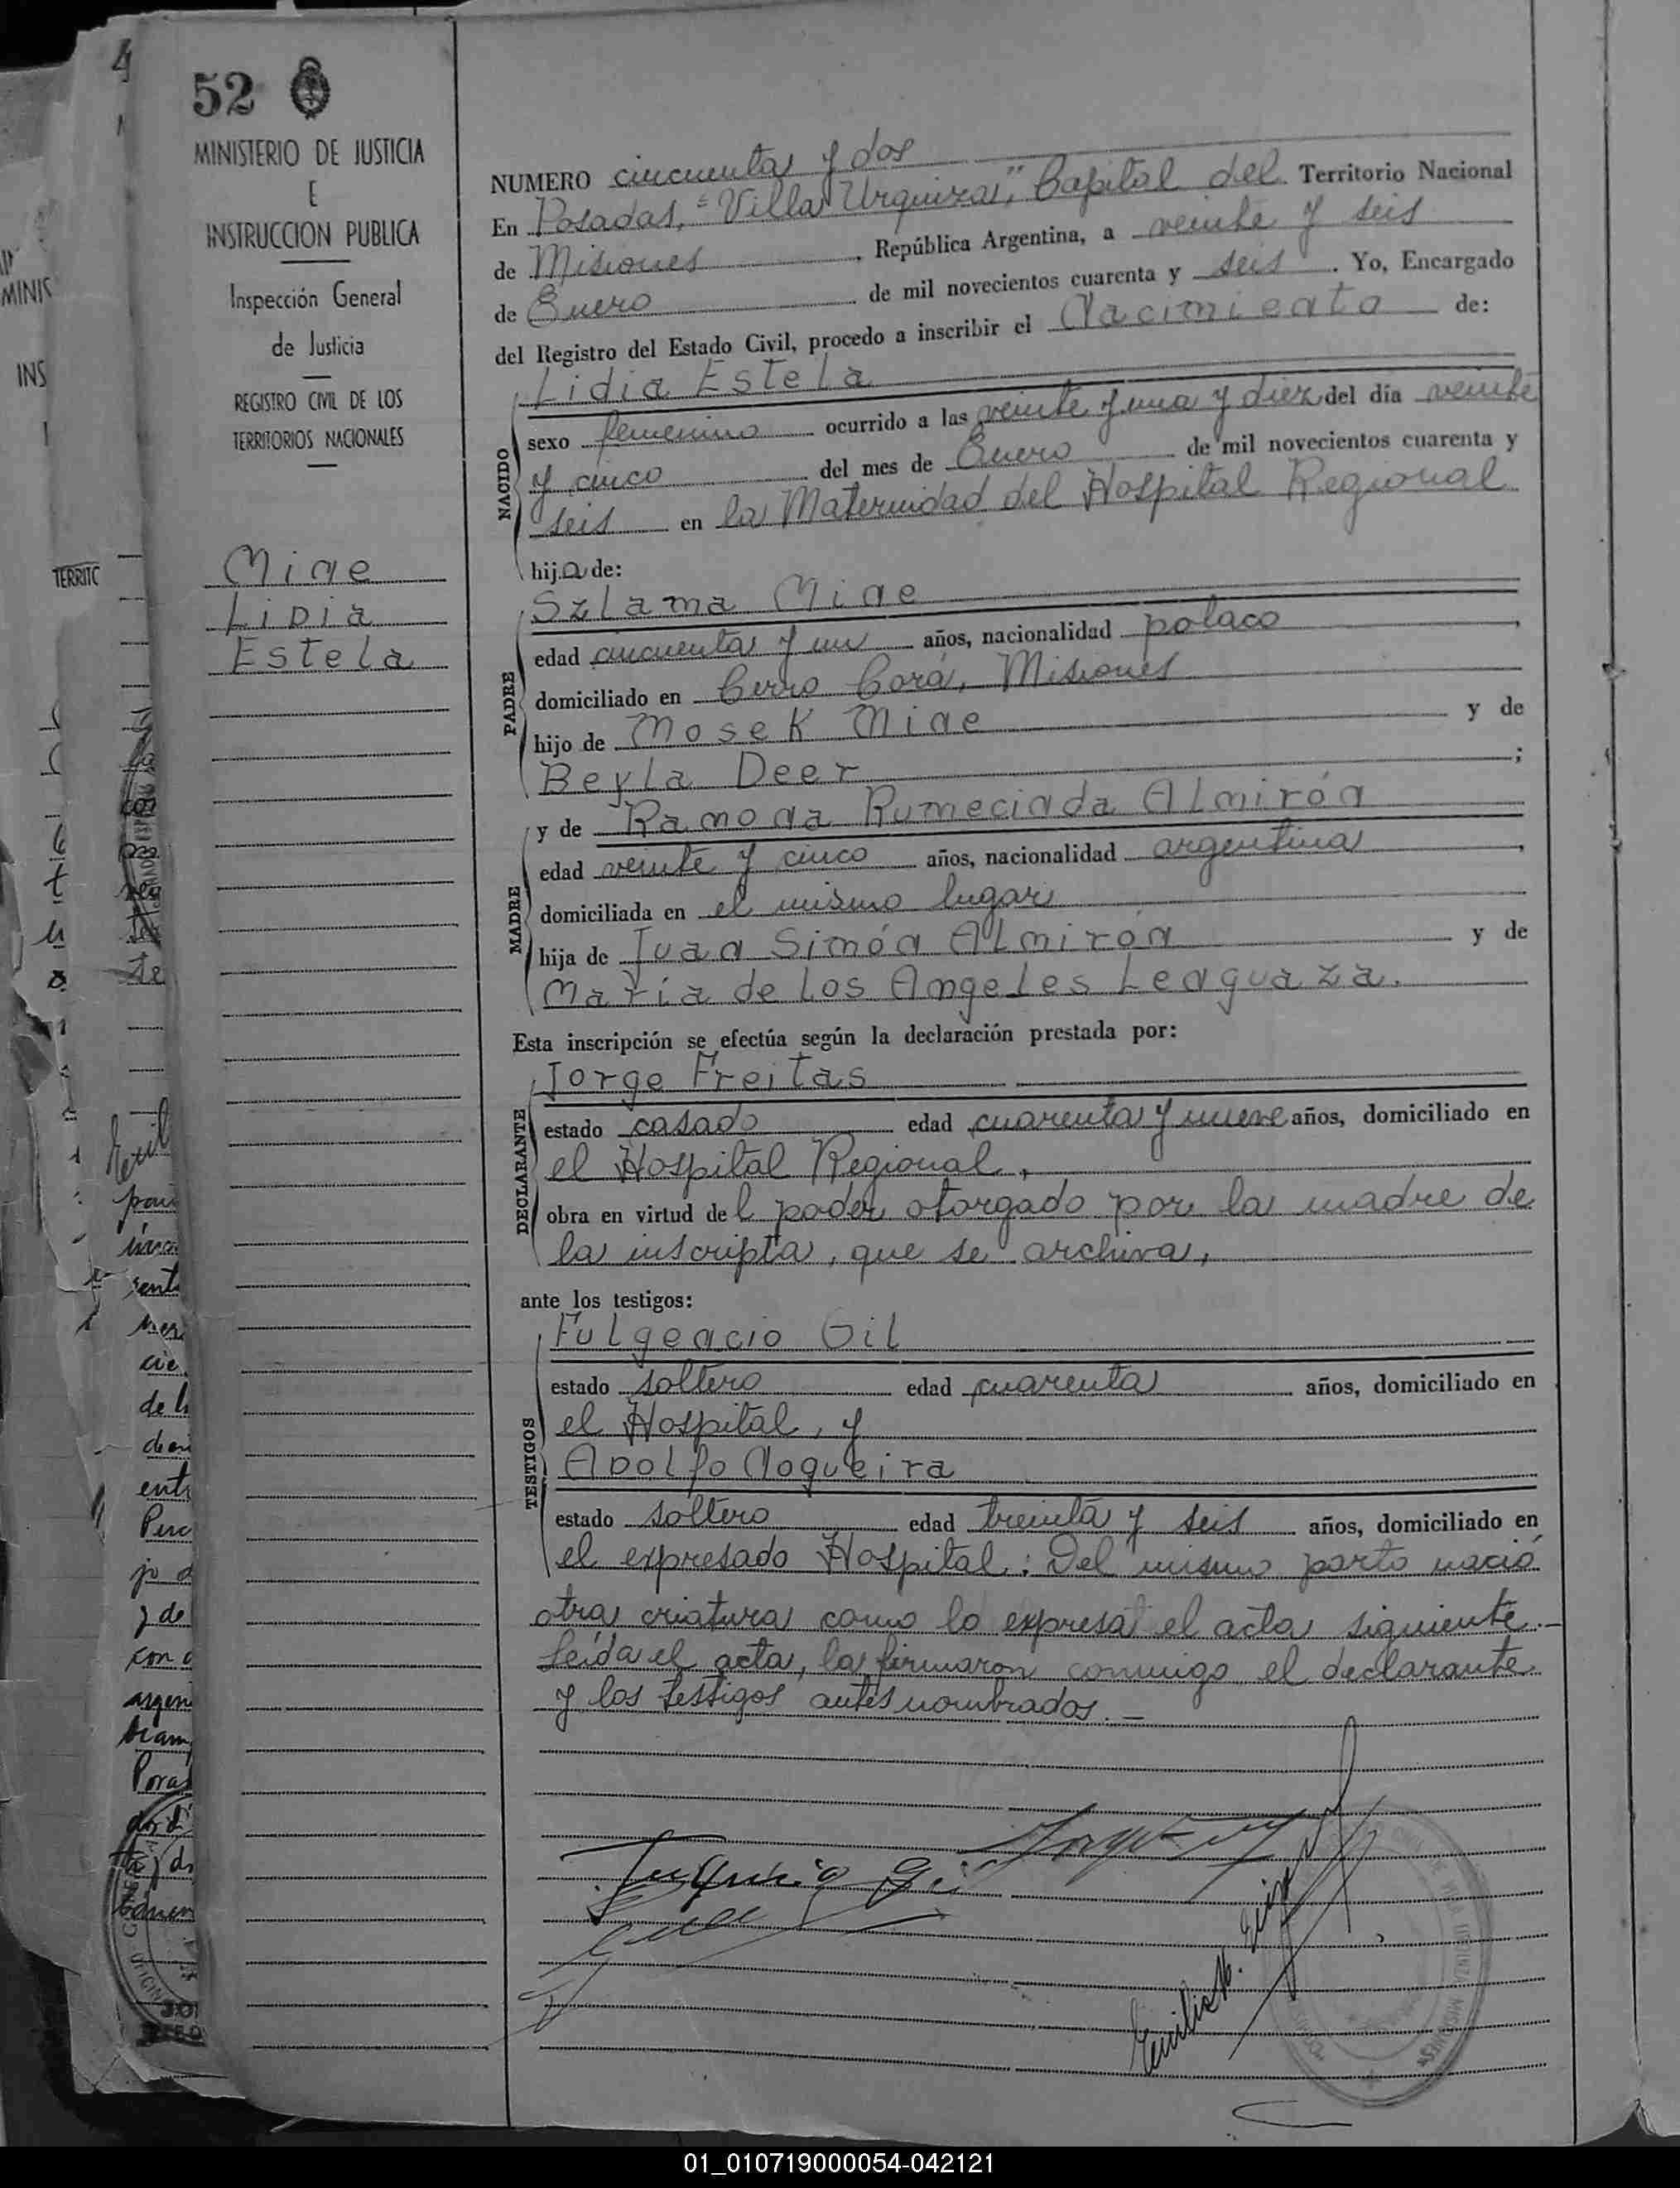 52
MINISTERIO DE JUSTICIA
E
INSTRUCCION PUBLICA
Inspección General
de Justicia
REGISTRO CIVIL DE LOS
TERRITORIOS NACIONALES
Mine
Lidia
Estela
NUMERO cincuenta y dos
En Posadas, "Villa Urquiza", Capital del Territorio Nacional
de Misiones, República Argentina, a veinte y seis
de Enero de mil novecientos cuarenta y seis. Yo, Encargado
del Registro del Estado Civil, procedo a inscribir el Nacimiento de:
NACIDO
Lidia Estela
sexo femenino ocurrido a las veinte y una y diez del día veinte
y cinco del mes de Enero de mil novecientos cuarenta y
seis en la Maternidad del Hospital Regional
hija de:
PADRE
Szlama Mine
edad cincuenta y un años, nacionalidad polaco,
domiciliado en Cerro Corá, Misiones
hijo de Mosek Mine y de
Beyla Deer;
MADRE
y de Ramona Rumecinda Almirón
edad veinte y cinco años, nacionalidad argentina,
domiciliada en el mismo lugar
hija de Juan Simón Almirón y de
María de los Angeles Lenguaza.
Esta inscripción se efectúa según la declaración prestada por:
DECLARANTE
Jorge Freitas
estado casado edad cuarenta y nueve años, domiciliado en
el Hospital Regional,
obra en virtud del poder otorgado por la madre de
la inscripta, que se archiva,
ante los testigos:
TESTIGOS
Fulgencio Gil
estado soltero edad cuarenta años, domiciliado en
el Hospital, y
Adolfo Nogueira
estado soltero edad treinta y seis años, domiciliado en
el expresado Hospital: Del mismo parto nació
otra criatura como lo expresa el acta siguiente.-
Leída el acta, la firmaron conmigo el declarante
y los testigos antes nombrados.-
01_010719000054-042121